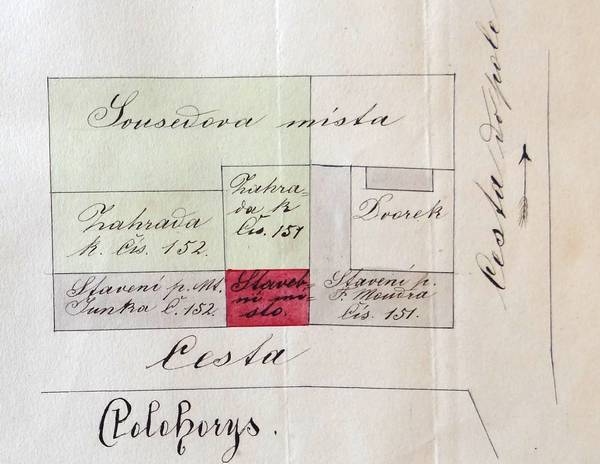 Sousedova místa
Zahrada
k. čís. 152.
Zahra-
da k
Čís. 151
Dvorek
Stavení p. Mt.
Junka Č. 152.
Staveb-
ní mí-
sto.
Stavení p.
F. Moudra
čís. 151.
Cesta
Cesta do pole
Polohorys.